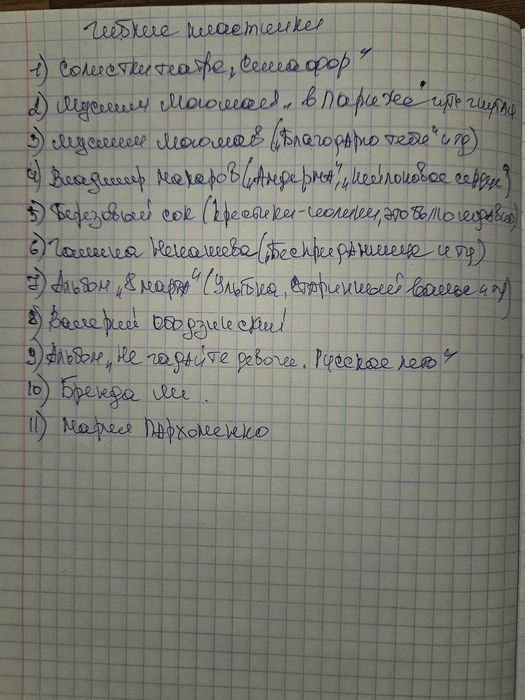 Гибкие пластинки
1) Солистки театра „Семафор"
2) Муслим Магомаев „в Париже"
3) Муслим Магомаев („Благодарю тебя" и тд)
4) Владимир Макаров („Андерма", „Нейлоновое сердце")
5) Березовый сок (Крестики-нолики, это было недавно)
6) Галина Ненашева („Бесприданница и тд)
7) Альбом „8 марта" (Улыбка, Старинный вальс и тд)
8) Валерий Ободзинский
9) Альбом „Не гадайте девочки. Русское лето"
10) Бренда ли.
11) Мария Пархоменко